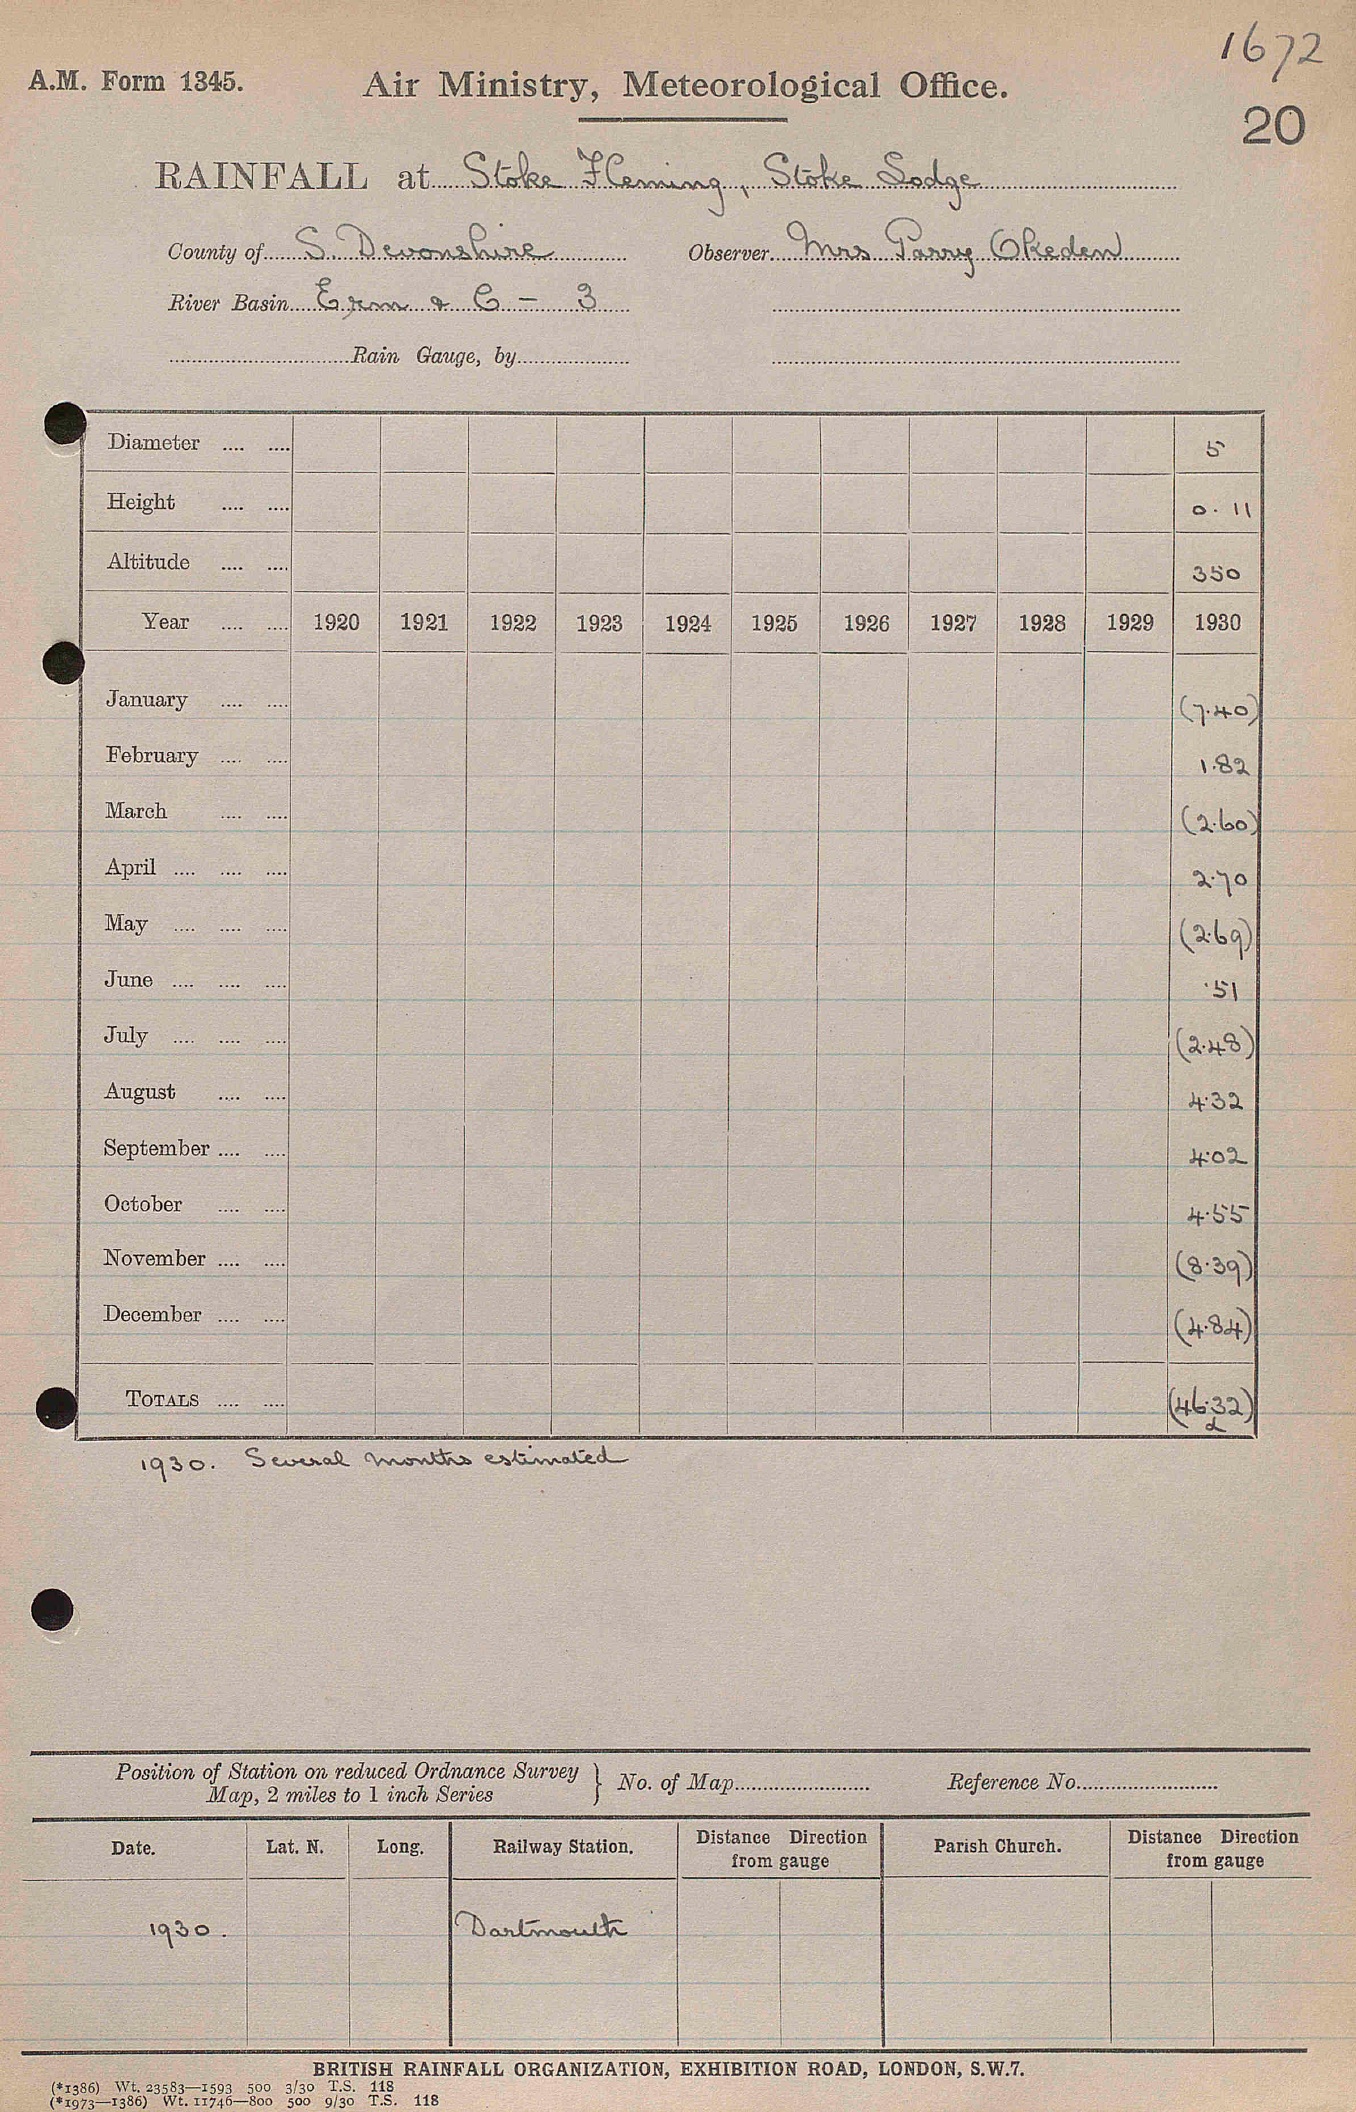 1672
A.M. Form 1345. Air Ministry, Meteorological Office.
20
RAINFALL at Stoke Fleming, Stoke Lodge
County of S. Devonshire Observer Mrs Parry Okeden
River Basin Erm & C – 3
Rain Gauge, by
Diameter .... .... 5
Height .... .... 0. 11
Altitude .... .... 350
Year .... .... 1920 1921 1922 1923 1924 1925 1926 1927 1928 1929 1930
January .... .... (7.40)
February .... .... 1.82
March .... .... (2.60)
April .... .... .... 2.70
May .... .... .... (2.69)
June .... .... .... .51
July .... .... .... (2.48)
August .... .... 4.32
September .... .... 4.02
October .... .... 4.55
November .... .... (8.39)
December .... .... (4.84)
TOTALS .... .... (46.32)
2
1930. Several months estimated
Position of Station on reduced Ordnance Survey
Map, 2 miles to 1 inch Series } No. of Map Reference No.
Date. Lat. N. Long. Railway Station. Distance Direction from gauge Parish Church. Distance Direction from gauge
1930. Dartmouth
BRITISH RAINFALL ORGANIZATION, EXHIBITION ROAD, LONDON, S.W.7.
(*1386) Wt. 23583—1593 500 3/30 T.S. 118
(*1973—1386) Wt. 11746—800 500 9/30 T.S. 118